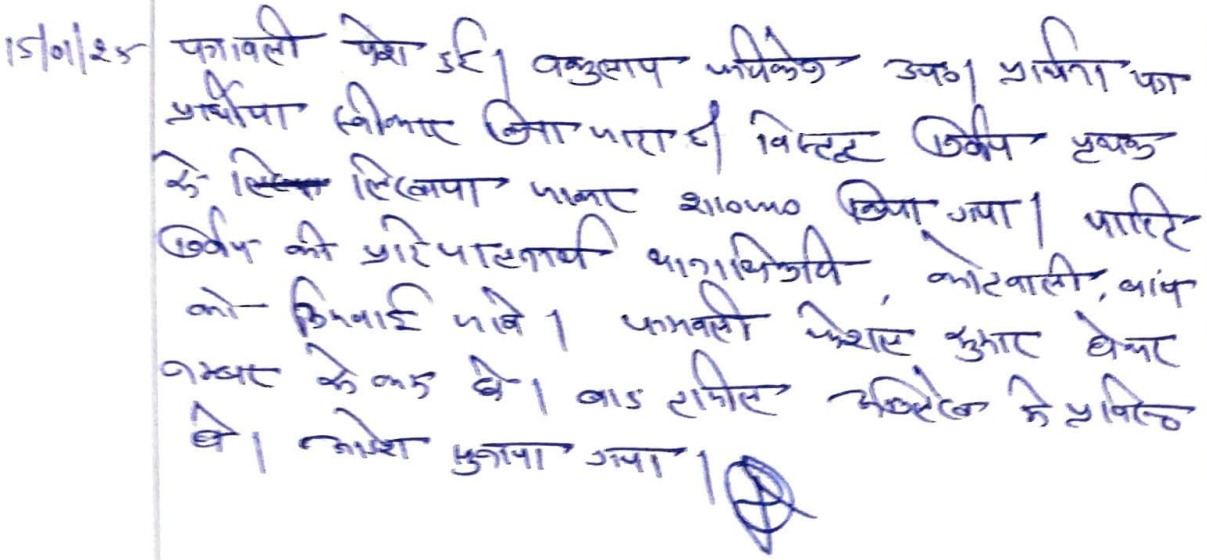 15/01/25 पत्रावली पेश हुई। वकुलाय फरिकेन उप०। प्रार्थना का
प्रार्थीया स्वीकार किया जाता है। विस्तृत निर्णय पृथक
से लिखाया जाकर शा०मि० किया गया। पारित
निर्णय की प्रति पालनार्थ थानाधिकारी, कोतवाली, बांरा
को भिजवाई जावे। पत्रावली फैसल शुमार होकर
नम्बर से कम हो। बाद तामील अभिलेख में प्रविष्ठ
हो। आदेश सुनाया गया।